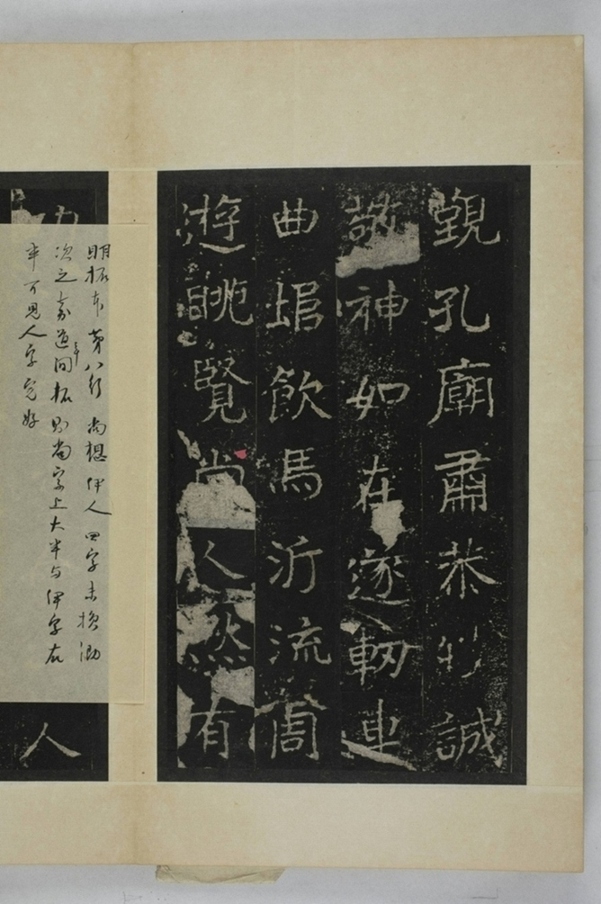 覲孔廟肅恭誠
敬神如在遂軔車
曲埠飲馬沂流周
游眺覽尚人然有
明拓本第八行尚想伊人四字未損泐
次之嘉道年間拓則尚字上大半与伊字右
半可見人字完好
人